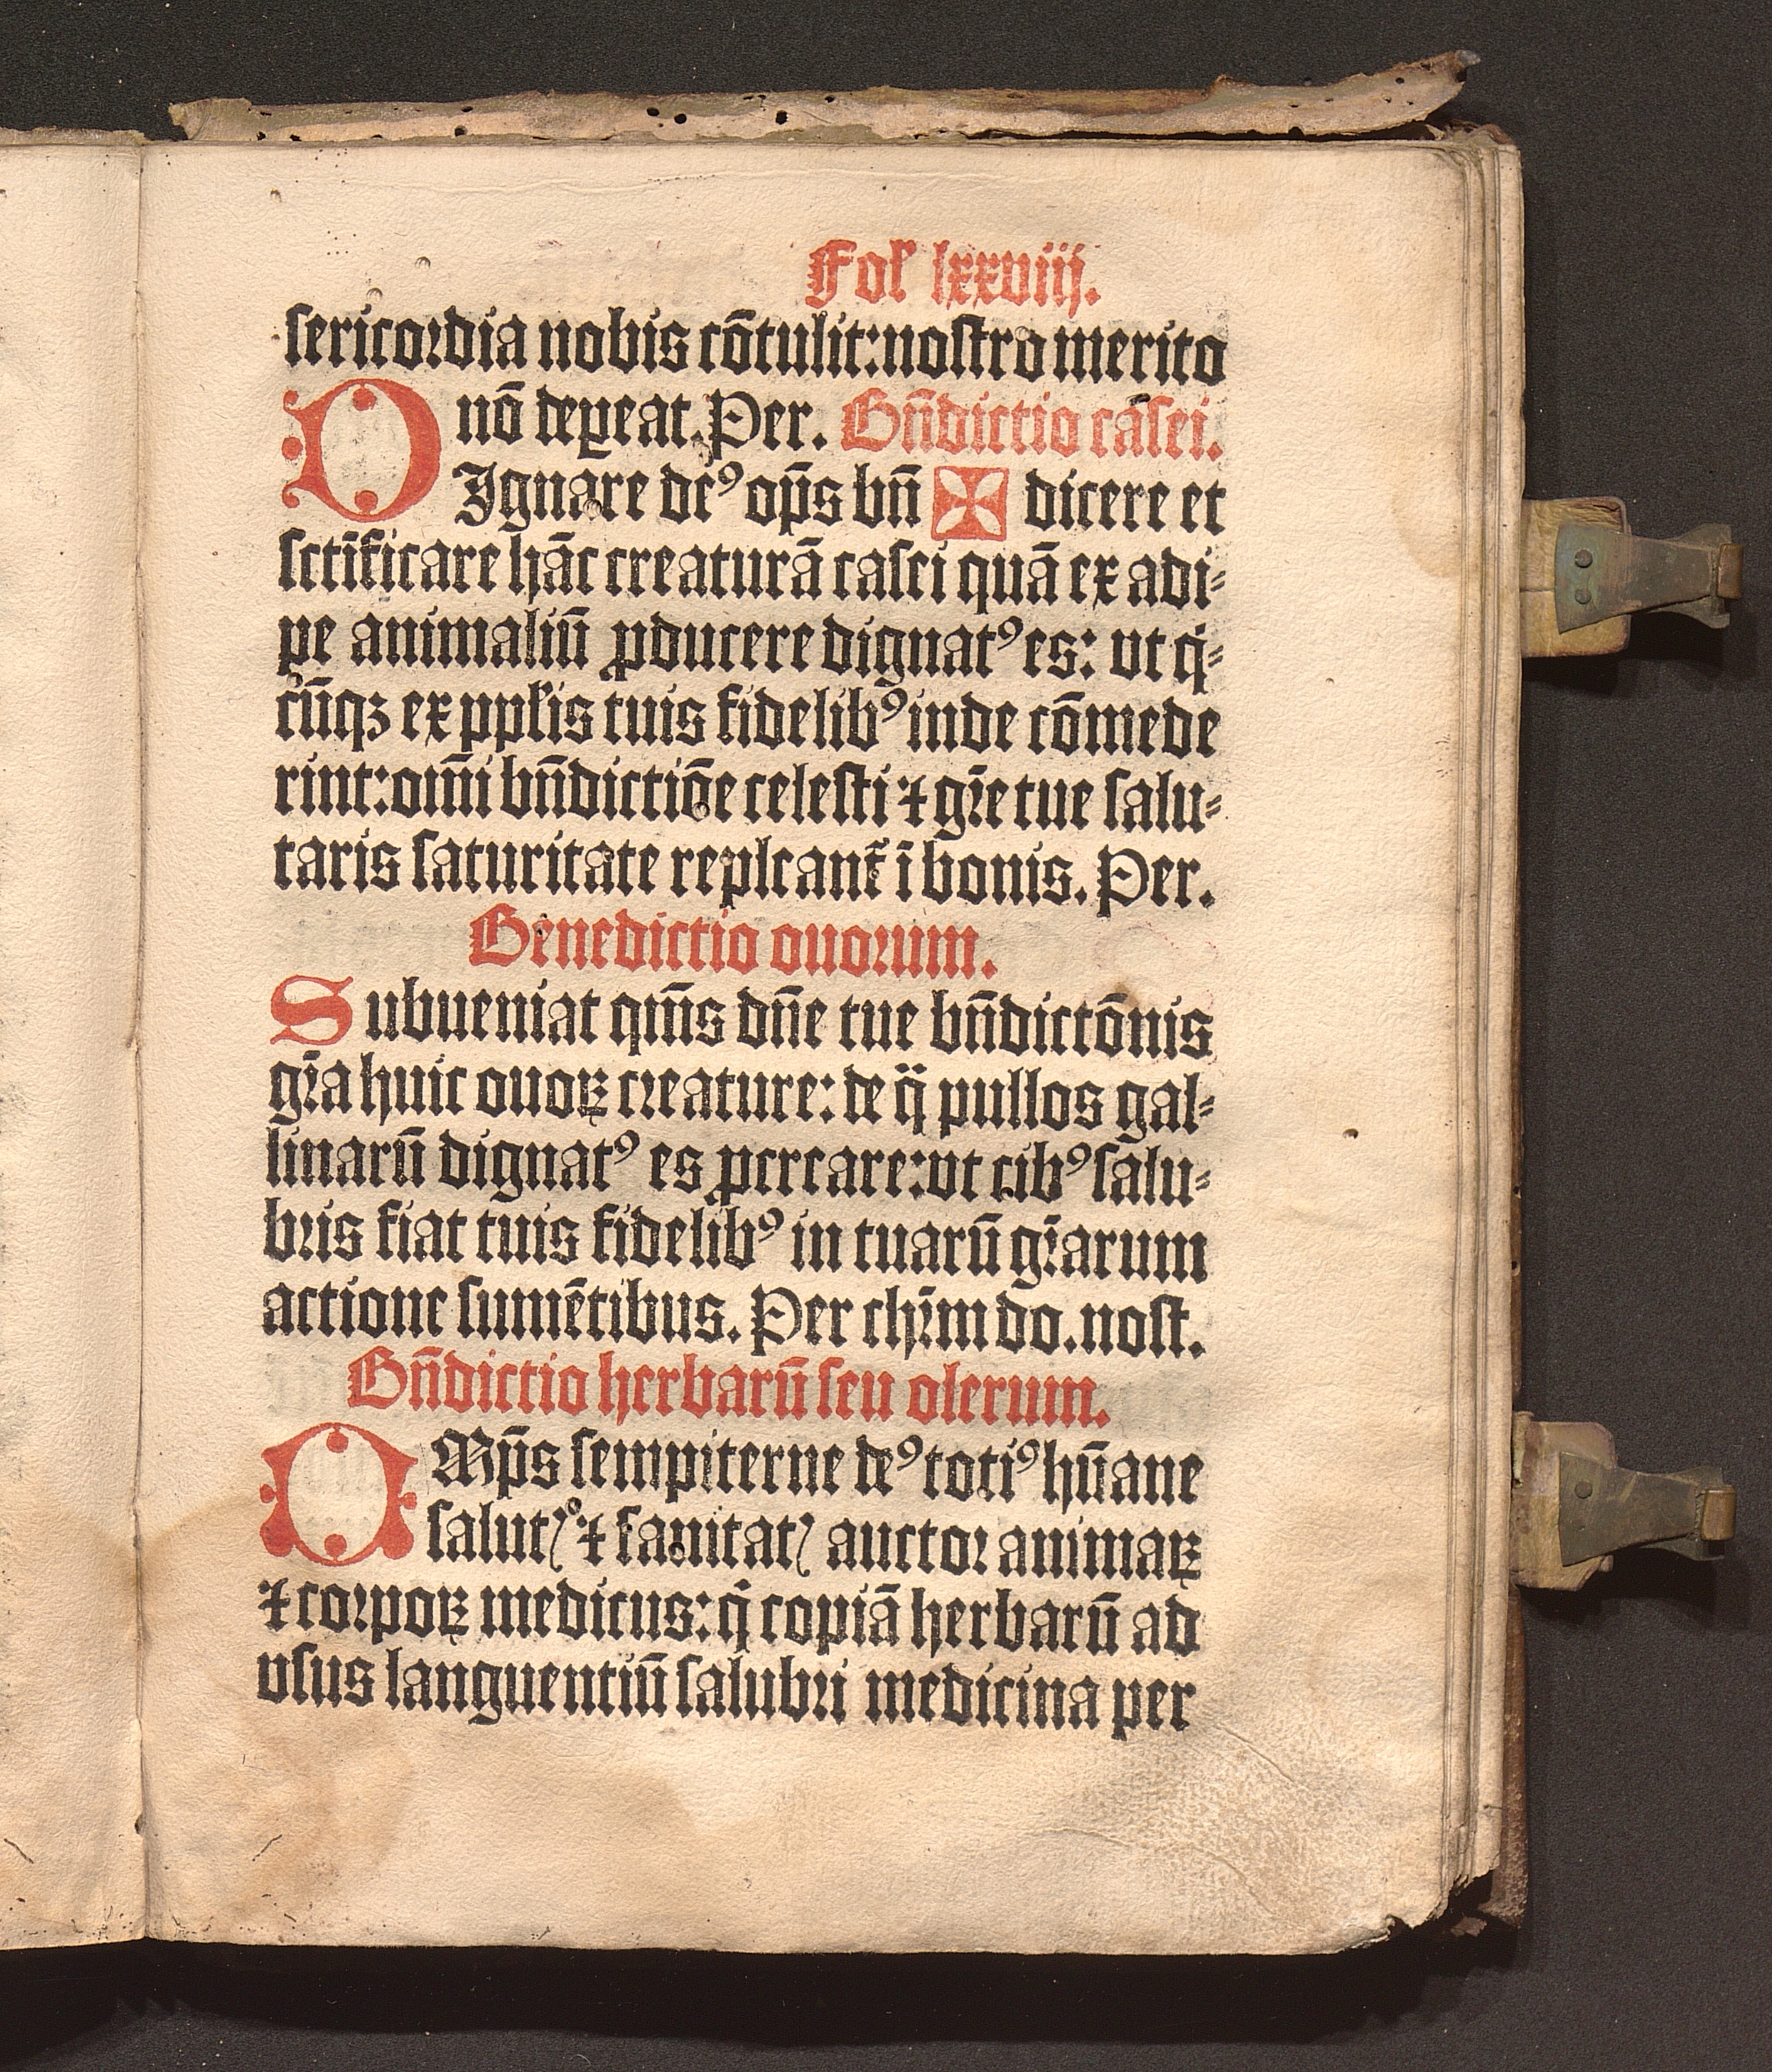 Fol' lxxviij.
sericordia nobis cōtulit: nostro merito
nō deꝑeat. Per. Bn̄dictio casei.
DIgnare deꝰ op̄s bn̄ ✠ dicere et
sctīficare hāc creaturā casei quā ex adi⸗
pe animaliū ꝓducere dignatꝰ es: vt q̇⸗
cūqꝫ ex ppl'is tuis fidelibꝰ inde cōmede
rint: om̄i bn̄dictiōe celesti ⁊ gr̄e tue salu⸗
taris saturitate repleant᷑ ī bonis. Per.
Benedictio ouorum.
Subueniat qm̄s dn̄e tue bn̄dictōnis
gr̄a huic ouoꝝ creature: de q̈ pullos gal⸗
linarū dignatꝰ es ꝓcreare: vt cibꝰ salu⸗
bris fiat tuis fidelibꝰ in tuarū gr̄arum
actione sumētibus. Per chr̄m do. nost.
Bn̄dictio herbarū seu olerum.
OMp̄s sempiterne deꝰ totiꝰ hūane
salutꝭ ⁊ sanitatꝭ auctor animaꝝ
⁊ corpoꝝ medicus: q̇ copiā herbarū ad
vsus languentiū salubri medicina per